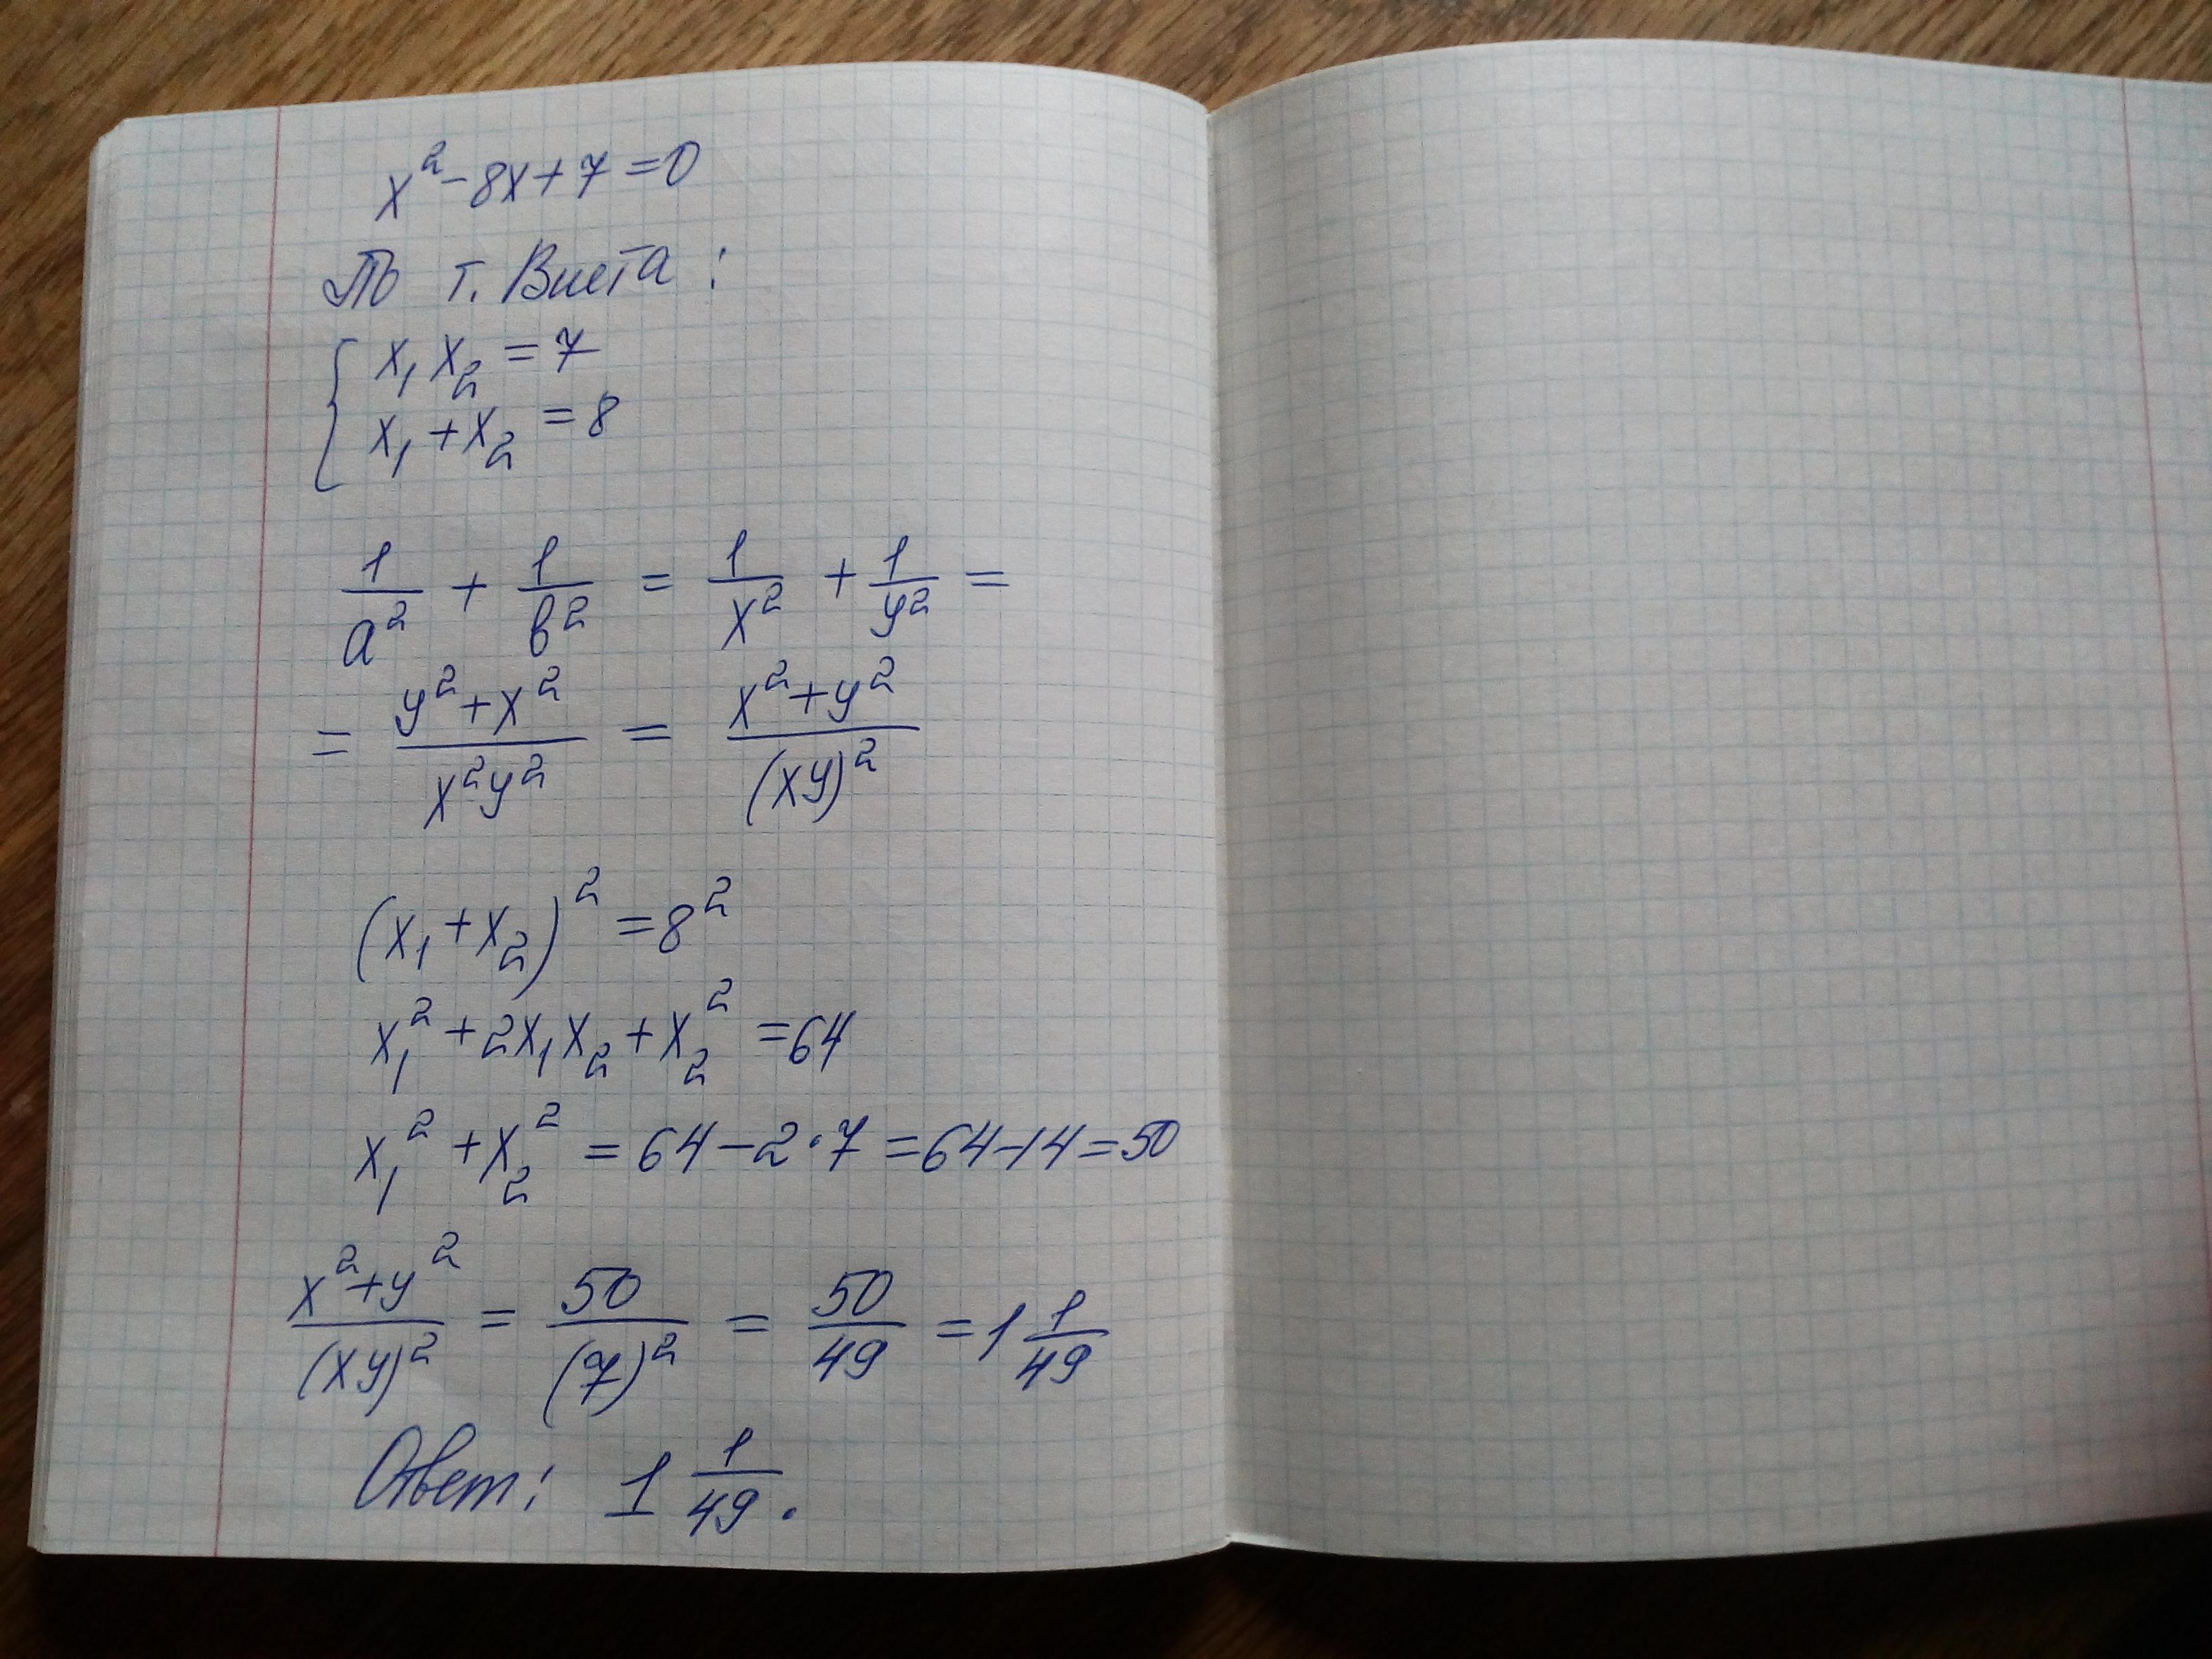 x² - 8x + 7 = 0
По т. Виета:
{ x₁ x₂ = 7
x₁ + x₂ = 8
1/a² + 1/b² = 1/x² + 1/y² =
= (y² + x²)/(x²y²) = (x² + y²)/(xy)²
(x₁ + x₂)² = 8²
x₁² + 2x₁x₂ + x₂² = 64
x₁² + x₂² = 64 - 2·7 = 64 - 14 = 50
(x² + y²)/(xy)² = 50/(7)² = 50/49 = 1 1/49
Ответ: 1 1/49.